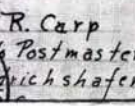 R. Carp
Postmaster
richshafen